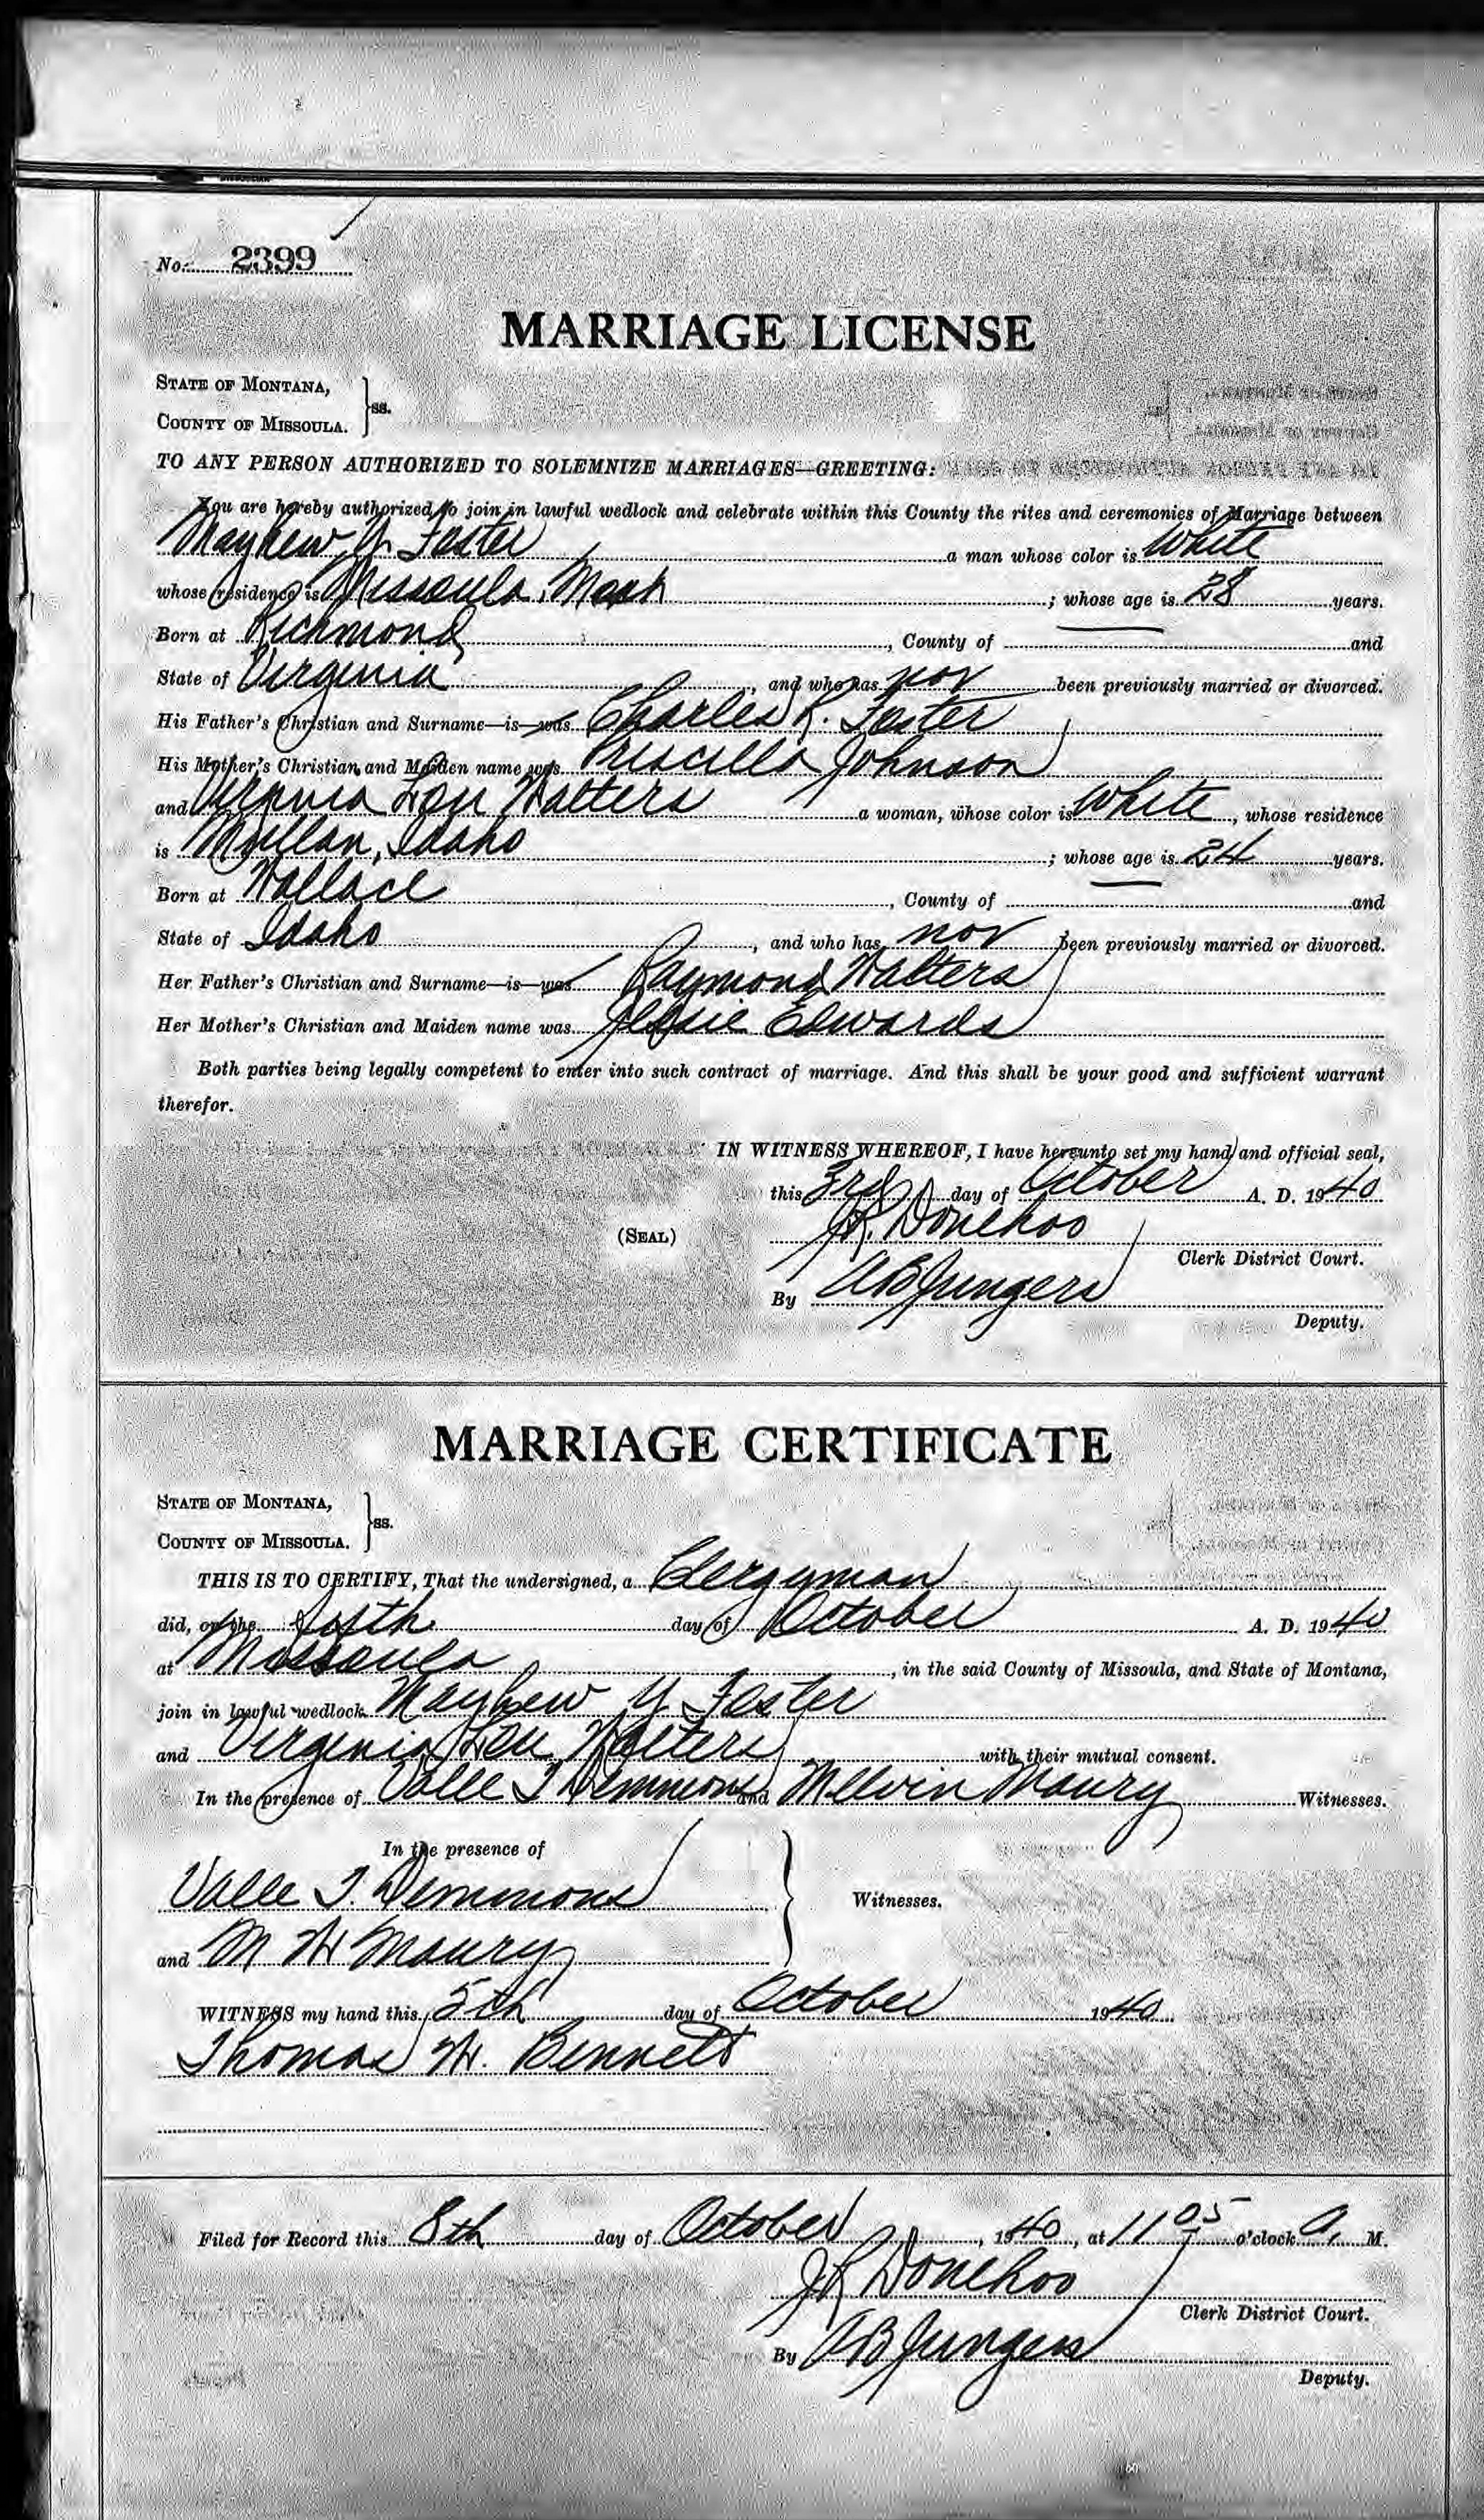 No. 2399
MARRIAGE LICENSE
STATE OF MONTANA,
COUNTY OF MISSOULA. } ss.
TO ANY PERSON AUTHORIZED TO SOLEMNIZE MARRIAGES—GREETING:
You are hereby authorized to join in lawful wedlock and celebrate within this County the rites and ceremonies of Marriage between
Mayhew Y. Foster a man whose color is White
whose residence is Missoula, ; whose age is 28 years.
Born at Richmond, County of and
State of Virginia, and who has not been previously married or divorced.
His Father's Christian and Surname—is—was Charles R. Foster
His Mother's Christian and Maiden name was Priscilla Johnson
and Virginia Lou Walters a woman, whose color is White, whose residence
is Mullan, Idaho ; whose age is 24 years.
Born at Wallace, County of and
State of Idaho, and who has not been previously married or divorced.
Her Father's Christian and Surname—is—was Raymond Walters
Her Mother's Christian and Maiden name was Jessie Edwards
Both parties being legally competent to enter into such contract of marriage. And this shall be your good and sufficient warrant
therefor.
IN WITNESS WHEREOF, I have hereunto set my hand and official seal,
this 3rd day of October A. D. 1940
(SEAL) J.R. Donehoo
Clerk District Court.
By A B Jungers
Deputy.
MARRIAGE CERTIFICATE
STATE OF MONTANA,
COUNTY OF MISSOULA. } ss.
THIS IS TO CERTIFY, That the undersigned, a Clergyman
did, on the day of October A. D. 1940
at Missoula, in the said County of Missoula, and State of Montana,
join in lawful wedlock Mayhew Y Foster
and Virginia Lou Walters with their mutual consent.
In the presence of Valle T Demmons and Melvin Maury Witnesses.
In the presence of
Valle T. Demmons
Witnesses.
and M W Maury
WITNESS my hand this 5th day of October 1940
Thomas W. Bennett
Filed for Record this 8th day of October, 1940, at 11 05 o'clock A. M.
J R Donehoo
Clerk District Court.
By A B Jungers
Deputy.